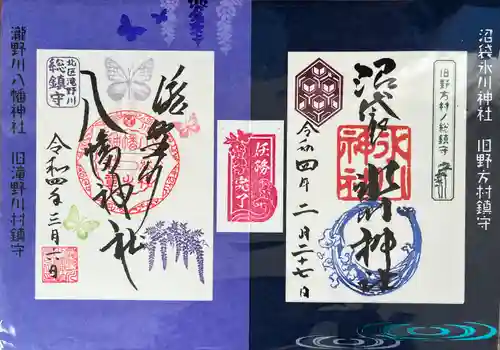 沼袋氷川神社 旧野方村鎮守
旧野方村ノ総鎮守
沼袋 氷川神社
令和四年 二月二十七日
任務
完了
滝野川
八幡神社
北区滝野川
総鎮守
令和四年 三月六日
瀧野川八幡神社 旧滝野川村鎮守